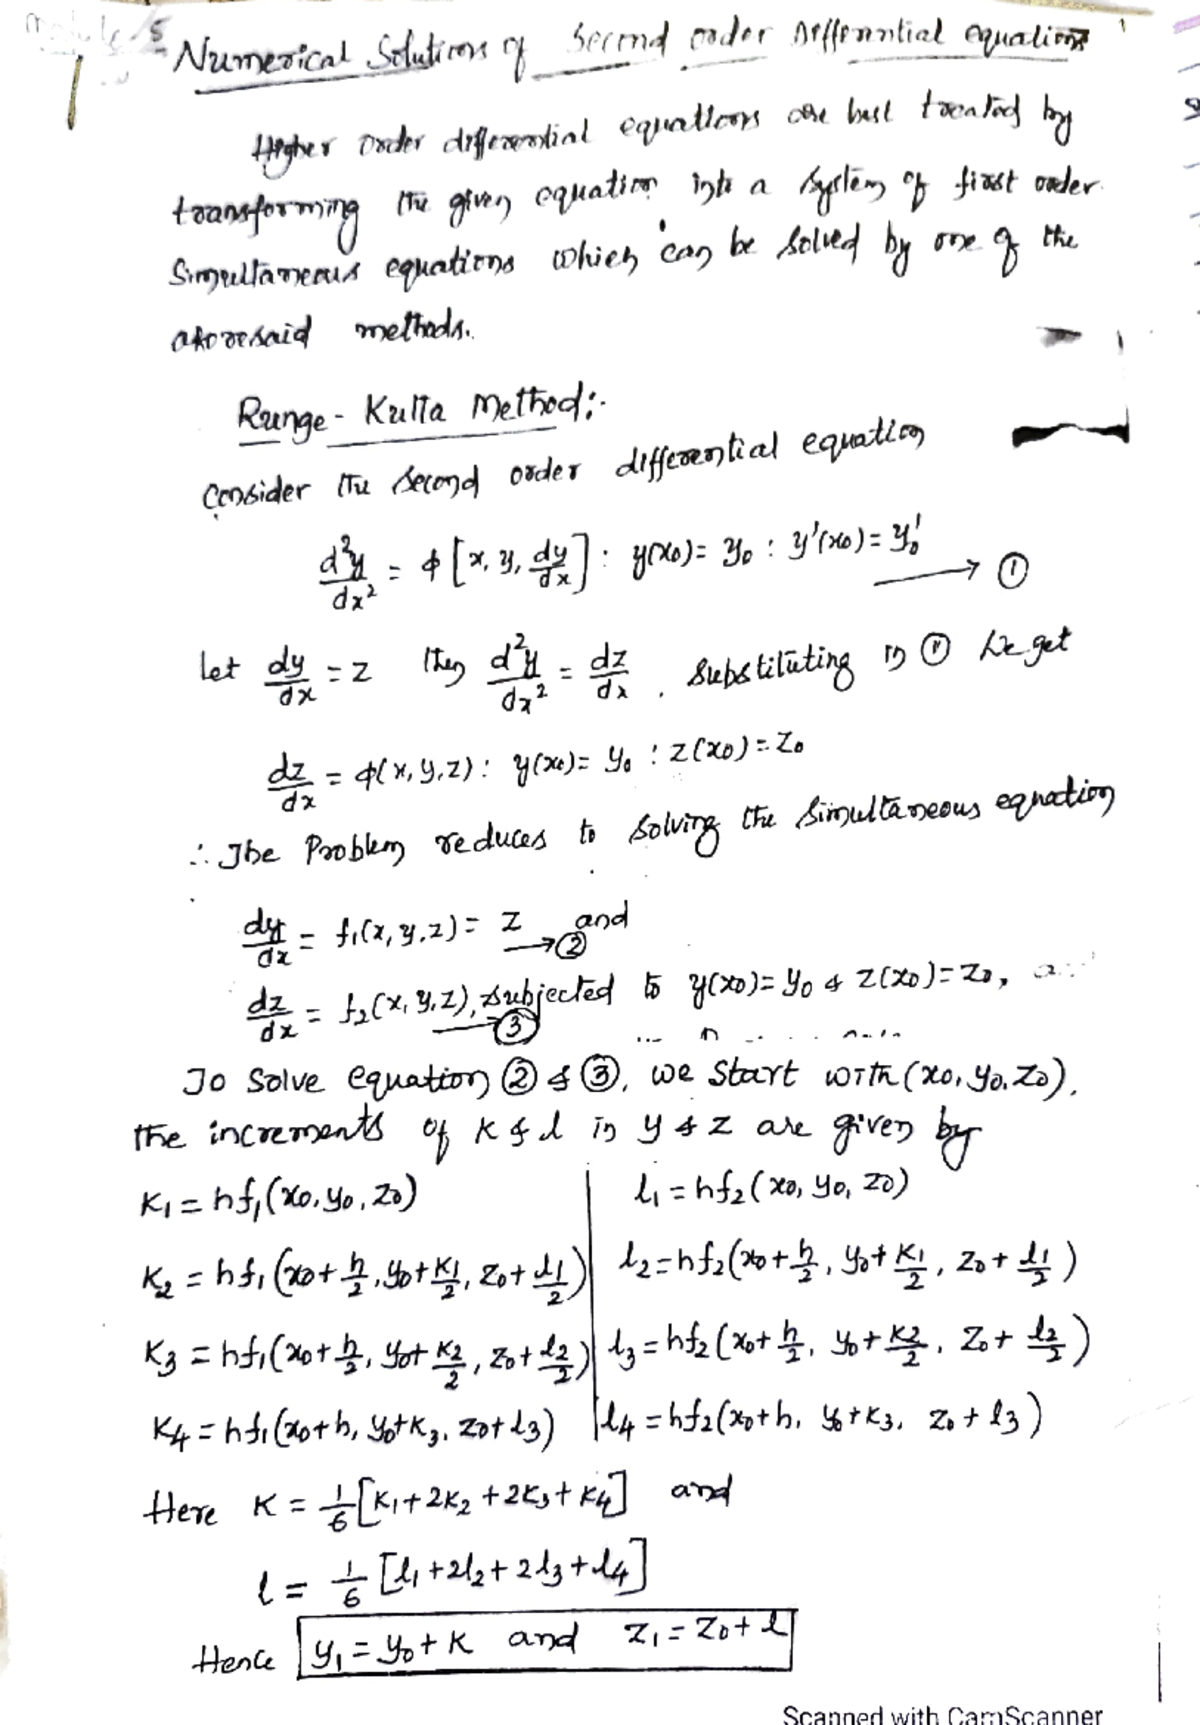 Module 5
Numerical Solutions of Second order Differential equations
Higher order differential equations are best treated by
transforming the given equation into a system of first order
Simultaneous equations which can be solved by one of the
aforesaid methods.
Runge - Kutta Method:-
Consider the second order differential equation
d²y/dx² = ϕ [x, y, dy/dx] : y(x₀) = y₀ : y'(x₀) = y₀' → ①
let dy/dx = z then d²y/dx² = dz/dx . Substituting in ① We get
dz/dx = ϕ(x, y, z) : y(x₀) = y₀ : z(x₀) = z₀
∴ The Problem reduces to solving the simultaneous equation
dy/dx = f₁(x, y, z) = z → ② and
dz/dx = f₂(x, y, z), → ③ subjected to y(x₀) = y₀ & z(x₀) = z₀,
To Solve equation ② & ③, we start with (x₀, y₀, z₀).
the increments of K & l in y & z are given by
K₁ = hf₁(x₀, y₀, z₀) l₁ = hf₂(x₀, y₀, z₀)
K₂ = hf₁(x₀ + h/2, y₀ + K₁/2, z₀ + l₁/2) l₂ = hf₂(x₀ + h/2, y₀ + K₁/2, z₀ + l₁/2)
K₃ = hf₁(x₀ + h/2, y₀ + K₂/2, z₀ + l₂/2) l₃ = hf₂(x₀ + h/2, y₀ + K₂/2, z₀ + l₂/2)
K₄ = hf₁(x₀ + h, y₀ + K₃, z₀ + l₃) l₄ = hf₂(x₀ + h, y₀ + K₃, z₀ + l₃)
Here K = 1/6 [K₁ + 2K₂ + 2K₃ + K₄] and
l = 1/6 [l₁ + 2l₂ + 2l₃ + l₄]
Hence y₁ = y₀ + K and z₁ = z₀ + l
Scanned with CamScanner